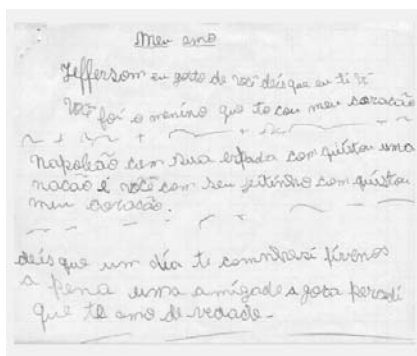 Meu amo
Jeffersom eu goto de você deisque eu ti vi
Você foi o menino que to cou meu coracão
Napoleão com sua espada com quistou uma
nacão e você com seu jeitinho com quistou
meu coracão.
deisque um dia te comnhesi fivemos
a pena uma amigade agora persedi
que te amo de verdade-